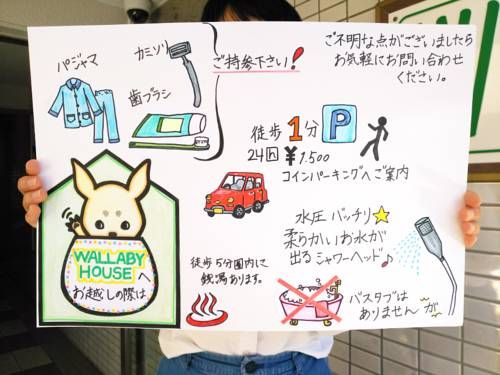 パジャマ
カミソリ
歯ブラシ
ご持参下さい!
ご不明な点がございましたら
お気軽にお問い合わせ
ください。
徒歩1分 P
24h ¥1.500
コインパーキングへご案内
WALLABY
HOUSEへ
お越しの際は
徒歩5分圏内に
銭湯あります。
水圧 バッチリ
柔らかいお水が
出るシャワーヘッド♪
バスタブは
ありませんが